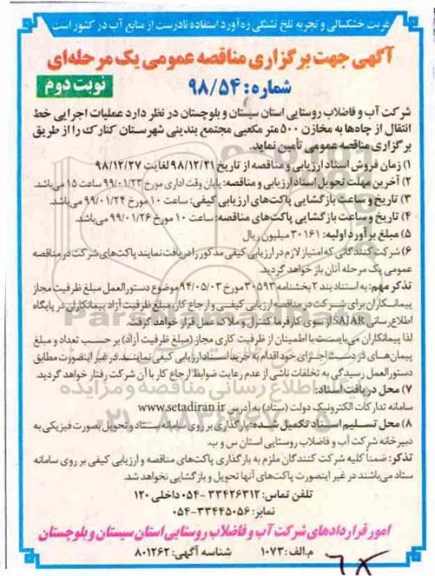 غربت خشکسالی و تجربه تلخ تشنگی ره‌آورد استفاده نادرست از منابع آب در کشور است
آگهی جهت برگزاری مناقصه عمومی یک مرحله‌ای
شماره: ۹۸/۵۴
نوبت دوم
شرکت آب و فاضلاب روستایی استان سیستان و بلوچستان در نظر دارد عملیات اجرایی خط
انتقال از چاه‌ها به مخازن ۵۰۰ متر مکعبی مجتمع بندینی شهرستان کنارک را از طریق
برگزاری مناقصه عمومی تأمین نماید.
۱) زمان فروش اسناد ارزیابی و مناقصه از تاریخ ۹۸/۱۲/۲۱ لغایت ۹۸/۱۲/۲۷
۲) آخرین مهلت تحویل اسناد ارزیابی و مناقصه: پایان وقت اداری مورخ ۹۹/۰۱/۲۳ ساعت ۱۵ می‌باشد.
۳) تاریخ و ساعت بازگشایی پاکت‌های ارزیابی کیفی: ساعت ۱۰ مورخ ۹۹/۰۱/۲۴ می‌باشد.
۴) تاریخ و ساعت بازگشایی پاکت‌های مناقصه: ساعت ۱۰ مورخ ۹۹/۰۱/۲۶ می‌باشد.
۵) مبلغ برآورد اولیه: ۳۰۱۶۱ میلیون ریال
۶) شرکت‌کنندگانی که امتیاز لازم در ارزیابی کیفی مذکور را دریافت نمایند پاکت‌های شرکت در مناقصه
عمومی یک مرحله آنان باز خواهد گردید.
تذکر مهم: به استناد بند ۲ بخشنامه ۳۰۵۹۳ مورخ ۹۴/۰۵/۰۳ موضوع دستورالعمل مبلغ ظرفیت مجاز
پیمانکاران برای شرکت در مناقصه ارزیابی کیفی و ارجاع کار، مبلغ ظرفیت آزاد پیمانکاران در پایگاه
اطلاع‌رسانی SAJAR از سوی کارفرما کنترل و ملاک عمل قرار خواهد گرفت.
لذا پیمانکاران می‌بایست با اطمینان از ظرفیت کاری مجاز (مبلغ ظرفیت آزاد) بر حسب تعداد و مبلغ
پیمان‌های در دست اجرای خود اقدام به خرید اسناد ارزیابی کیفی نمایند. در غیر اینصورت مطابق
دستورالعمل رسیدگی به تخلفات ناشی از عدم رعایت ضوابط ارجاع کار با آن شرکت رفتار خواهد گردید.
۷) محل دریافت اسناد:
سامانه تدارکات الکترونیک دولت (ستاد) به آدرس www.setadiran.ir
۸) محل تسلیم اسناد تکمیل شده: بارگذاری بر روی سامانه ستاد و تحویل بصورت فیزیکی به
دبیرخانه شرکت آب و فاضلاب روستایی استان س و ب.
تذکر: ضمناً کلیه شرکت کنندگان ملزم به بارگذاری پاکت‌های مناقصه و ارزیابی کیفی بر روی سامانه
ستاد می‌باشند در غیر اینصورت پاکت‌های آنها تحویل و بازگشایی نخواهد شد.
تلفن تماس: ۳۳۴۲۶۳۱۲-۰۵۴ داخلی ۱۲۰
نمابر: ۳۳۴۴۵۰۵۶-۰۵۴
امور قراردادهای شرکت آب و فاضلاب روستایی استان سیستان و بلوچستان
م.الف: ۱۰۷۳
شناسه آگهی: ۸۰۱۲۶۲